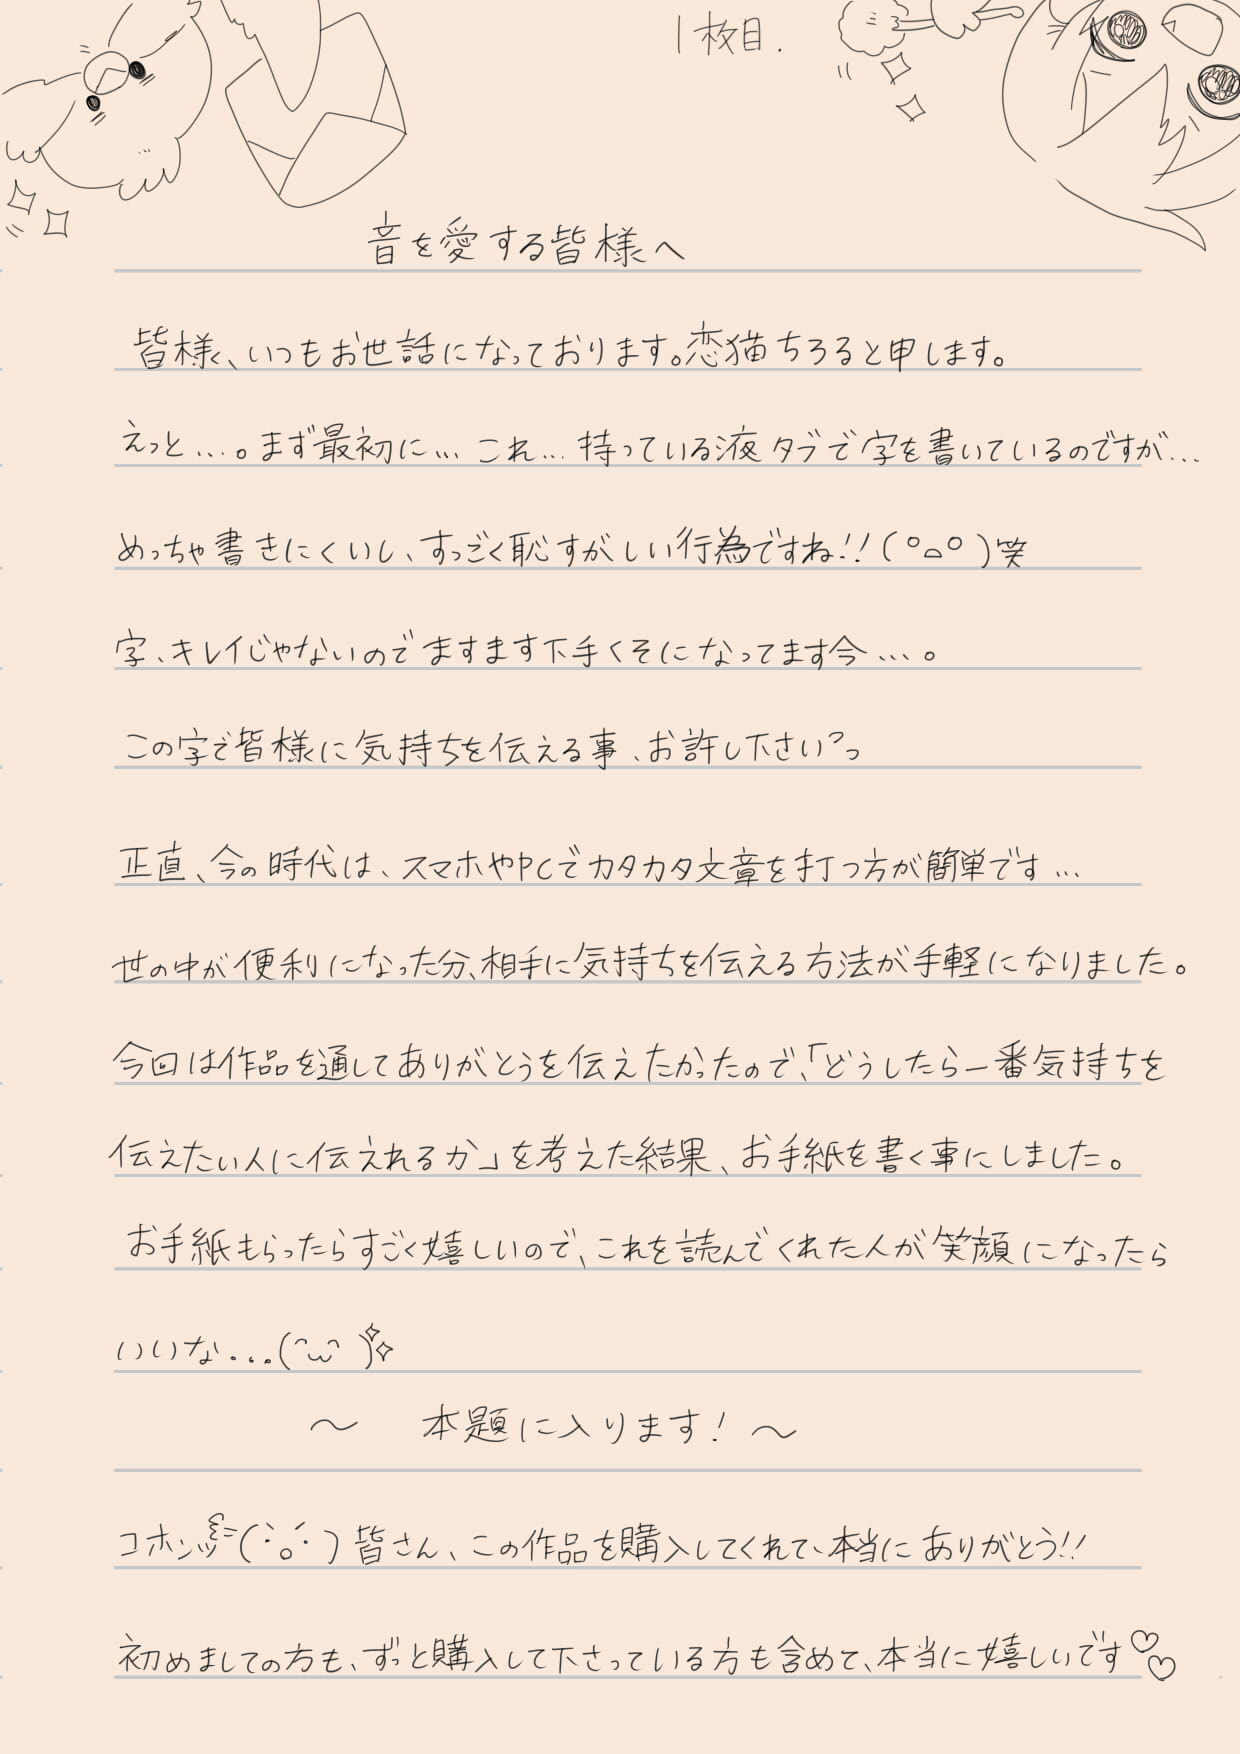 1枚目.
音を愛する皆様へ
皆様、いつもお世話になっております。恋猫ちろると申します。
えっと…。まず最初に…これ…持っている液タブで字を書いているのですが…
めっちゃ書きにくいし、すっごく恥ずがしい行為ですね!!(°△°)笑
字、キレイじゃないのでますます下手くそになってます今…。
この字で皆様に気持ちを伝える事、お許し下さいっ
正直、今の時代は、スマホやPCでカタカタ文章を打つ方が簡単です…
世の中が便利になった分、相手に気持ちを伝える方法が手軽になりました。
今回は作品を通してありがとうを伝えたかったので、「どうしたら一番気持ちを
伝えたい人に伝えれるか」を考えた結果、お手紙を書く事にしました。
お手紙もらったらすごく嬉しいので、これを読んでくれた人が笑顔になったら
いいな...(^ω^)
～ 本題に入ります！～
コホンッ(･o･)皆さん、この作品を購入してくれて、本当にありがとう!!
初めましての方も、ずっと購入して下さっている方も含めて、本当に嬉しいです♡♡